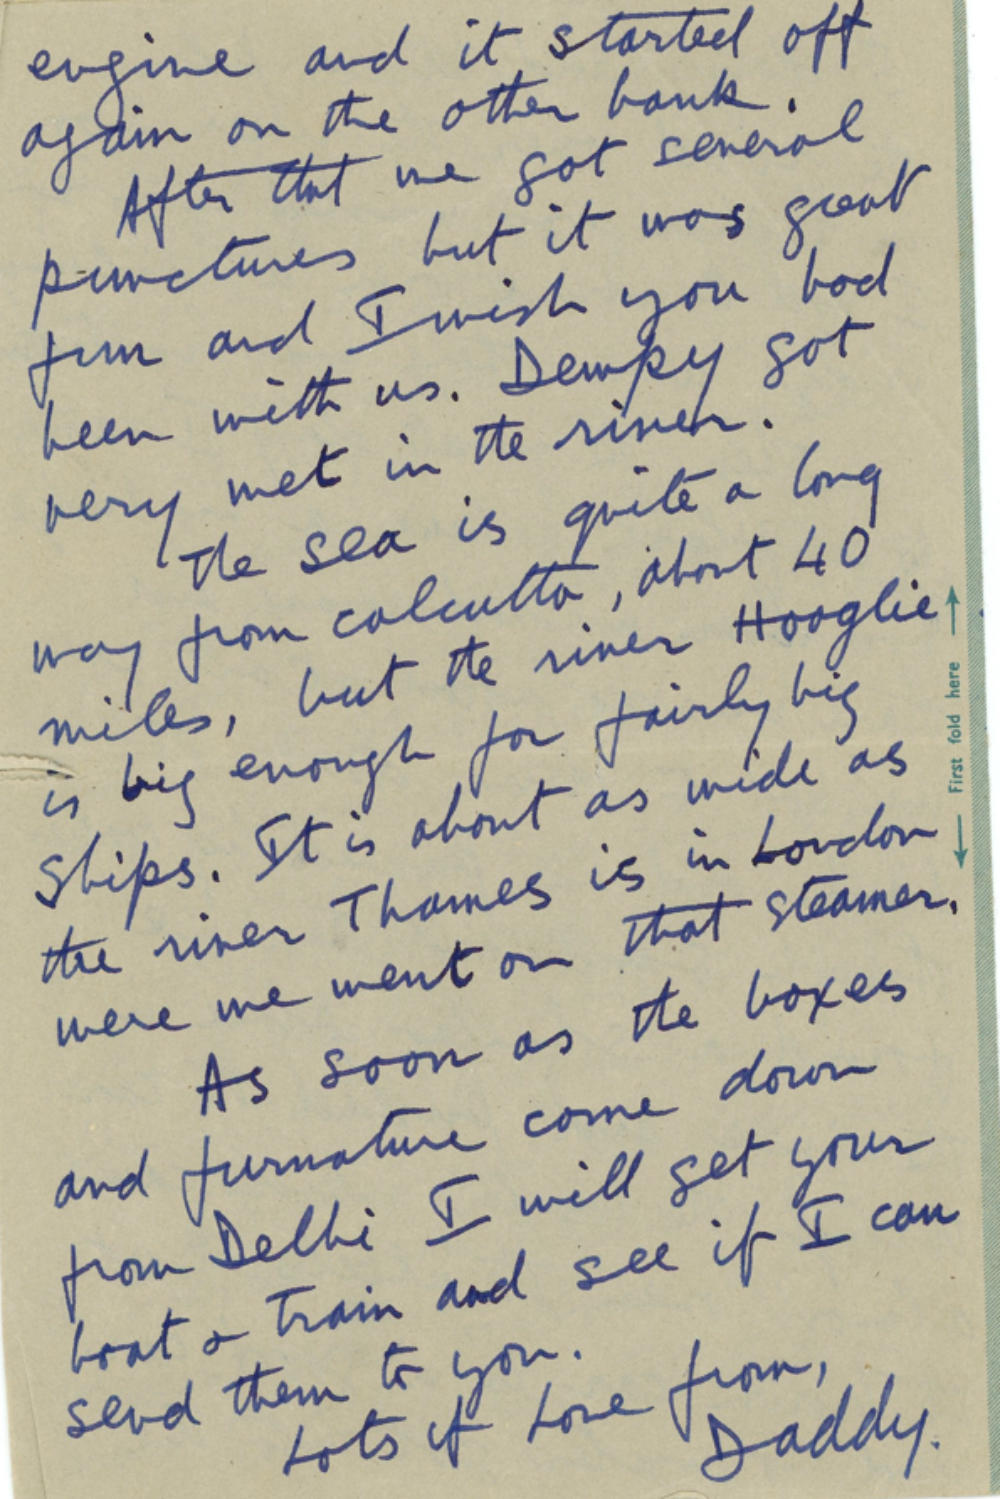 engine and it started off
again on the other bank.
After that we got several
punctures but it was great
fun and I wish you had
been with us. Dempy got
very wet in the river.
The sea is quite a long
way from calcutta, about 40
miles, but the river Hooglie
is big enough for fairly big
ships. It is about as wide as
the river Thames is in London
were we went on that steamer.
As soon as the boxes
and furnature come down
from Delhi I will get your
boat & train and see if I can
send them to you.
Lots of Love from,
Daddy.
First fold here